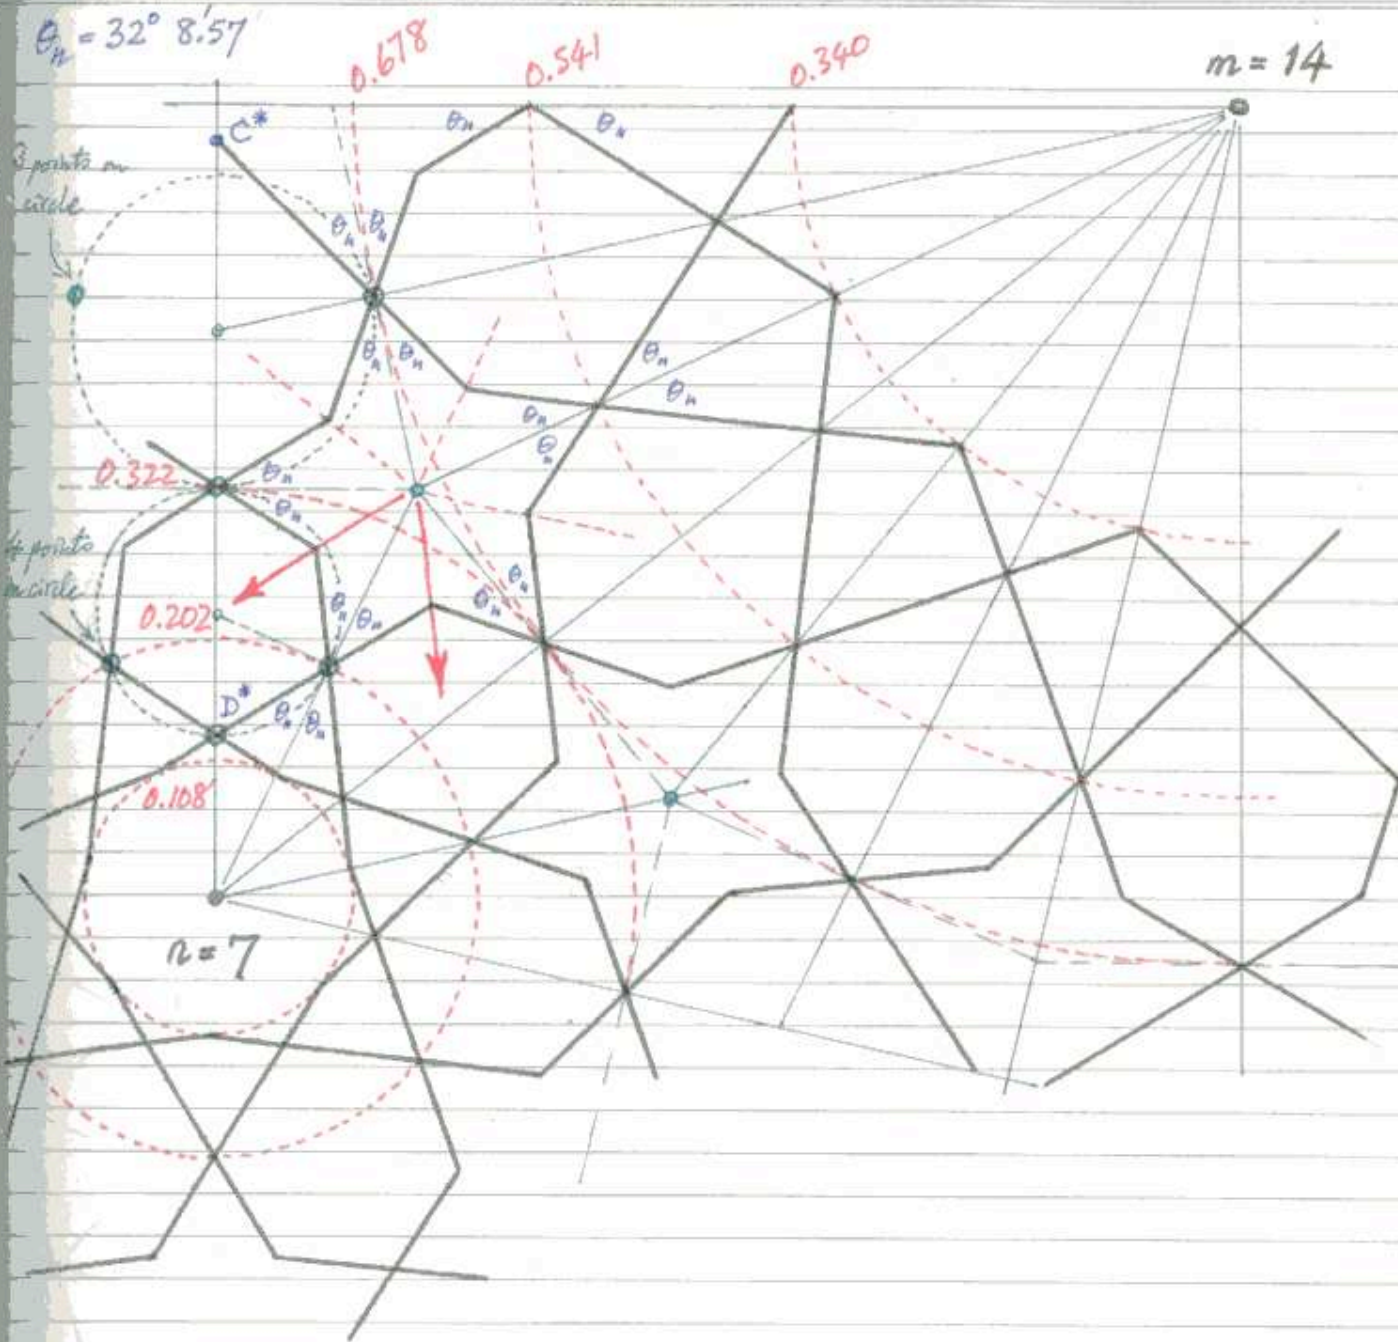 θn = 32° 8'.57
0.678
0.541
0.340
m = 14
C*
θn
θn
3 points on
circle
θn
θn
θn
θn
θn
θn
θn
θn
0.322
θn
θn
4 points
on circle
θn
θn
θn
θn
0.202
D*
θn
θn
0.108
n = 7